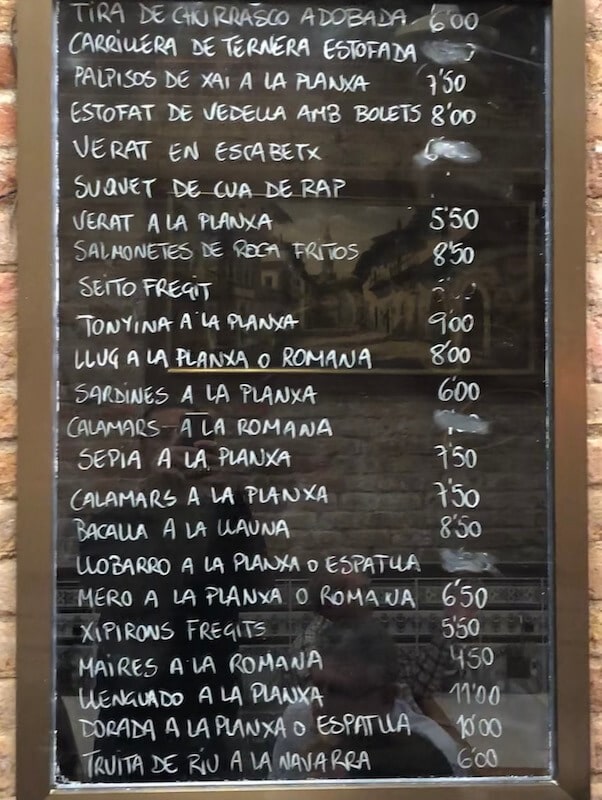 TIRA DE CHURRASCO ADOBADA 6'00
CARRILLERA DE TERNERA ESTOFADA
PALPISOS DE XAI A LA PLANXA 7'50
ESTOFAT DE VEDELLA AMB BOLETS 8'00
VERAT EN ESCABETX
SUQUET DE CUA DE RAP
VERAT A LA PLANXA 5'50
SALMONETES DE ROCA FRITOS 8'50
SEITO FREGIT
TONYINA A LA PLANXA 9'00
LLUG A LA PLANXA O ROMANA 8'00
SARDINES A LA PLANXA 6'00
CALAMARS A LA ROMANA
SEPIA A LA PLANXA 7'50
CALAMARS A LA PLANXA 7'50
BACALLA A LA LLAUNA 8'50
LLOBARRO A LA PLANXA O ESPATLLA
MERO A LA PLANXA O ROMANA 6'50
XIPIRONS FREGITS 5'50
MAIRES A LA ROMANA 4'50
LLENGUADO A LA PLANXA 11'00
DORADA A LA PLANXA O ESPATLLA 10'00
TRUITA DE RIU A LA NAVARRA 6'00